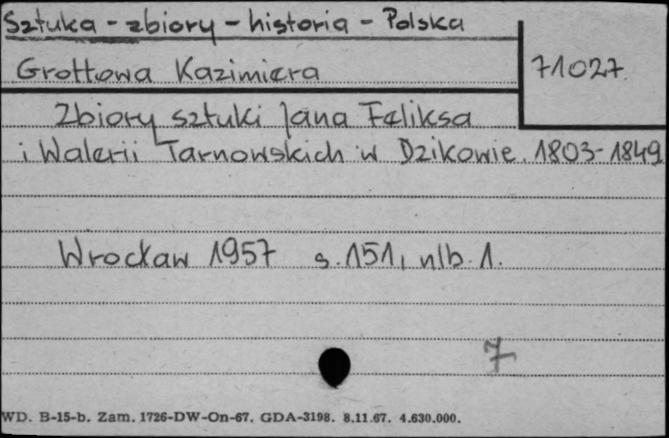 Sztuka - zbiory - historia - Polska
Grottowa Kazimiera
71027
Zbiory sztuki Jana Feliksa
i Walerii Tarnowskich w Dzikowie. 1803-1849
Wrocław 1957 s. 151, nlb. 1.
7
WD. B-15-b. Zam. 1726-DW-On-67. GDA-3198. 8.11.67. 4.630.000.